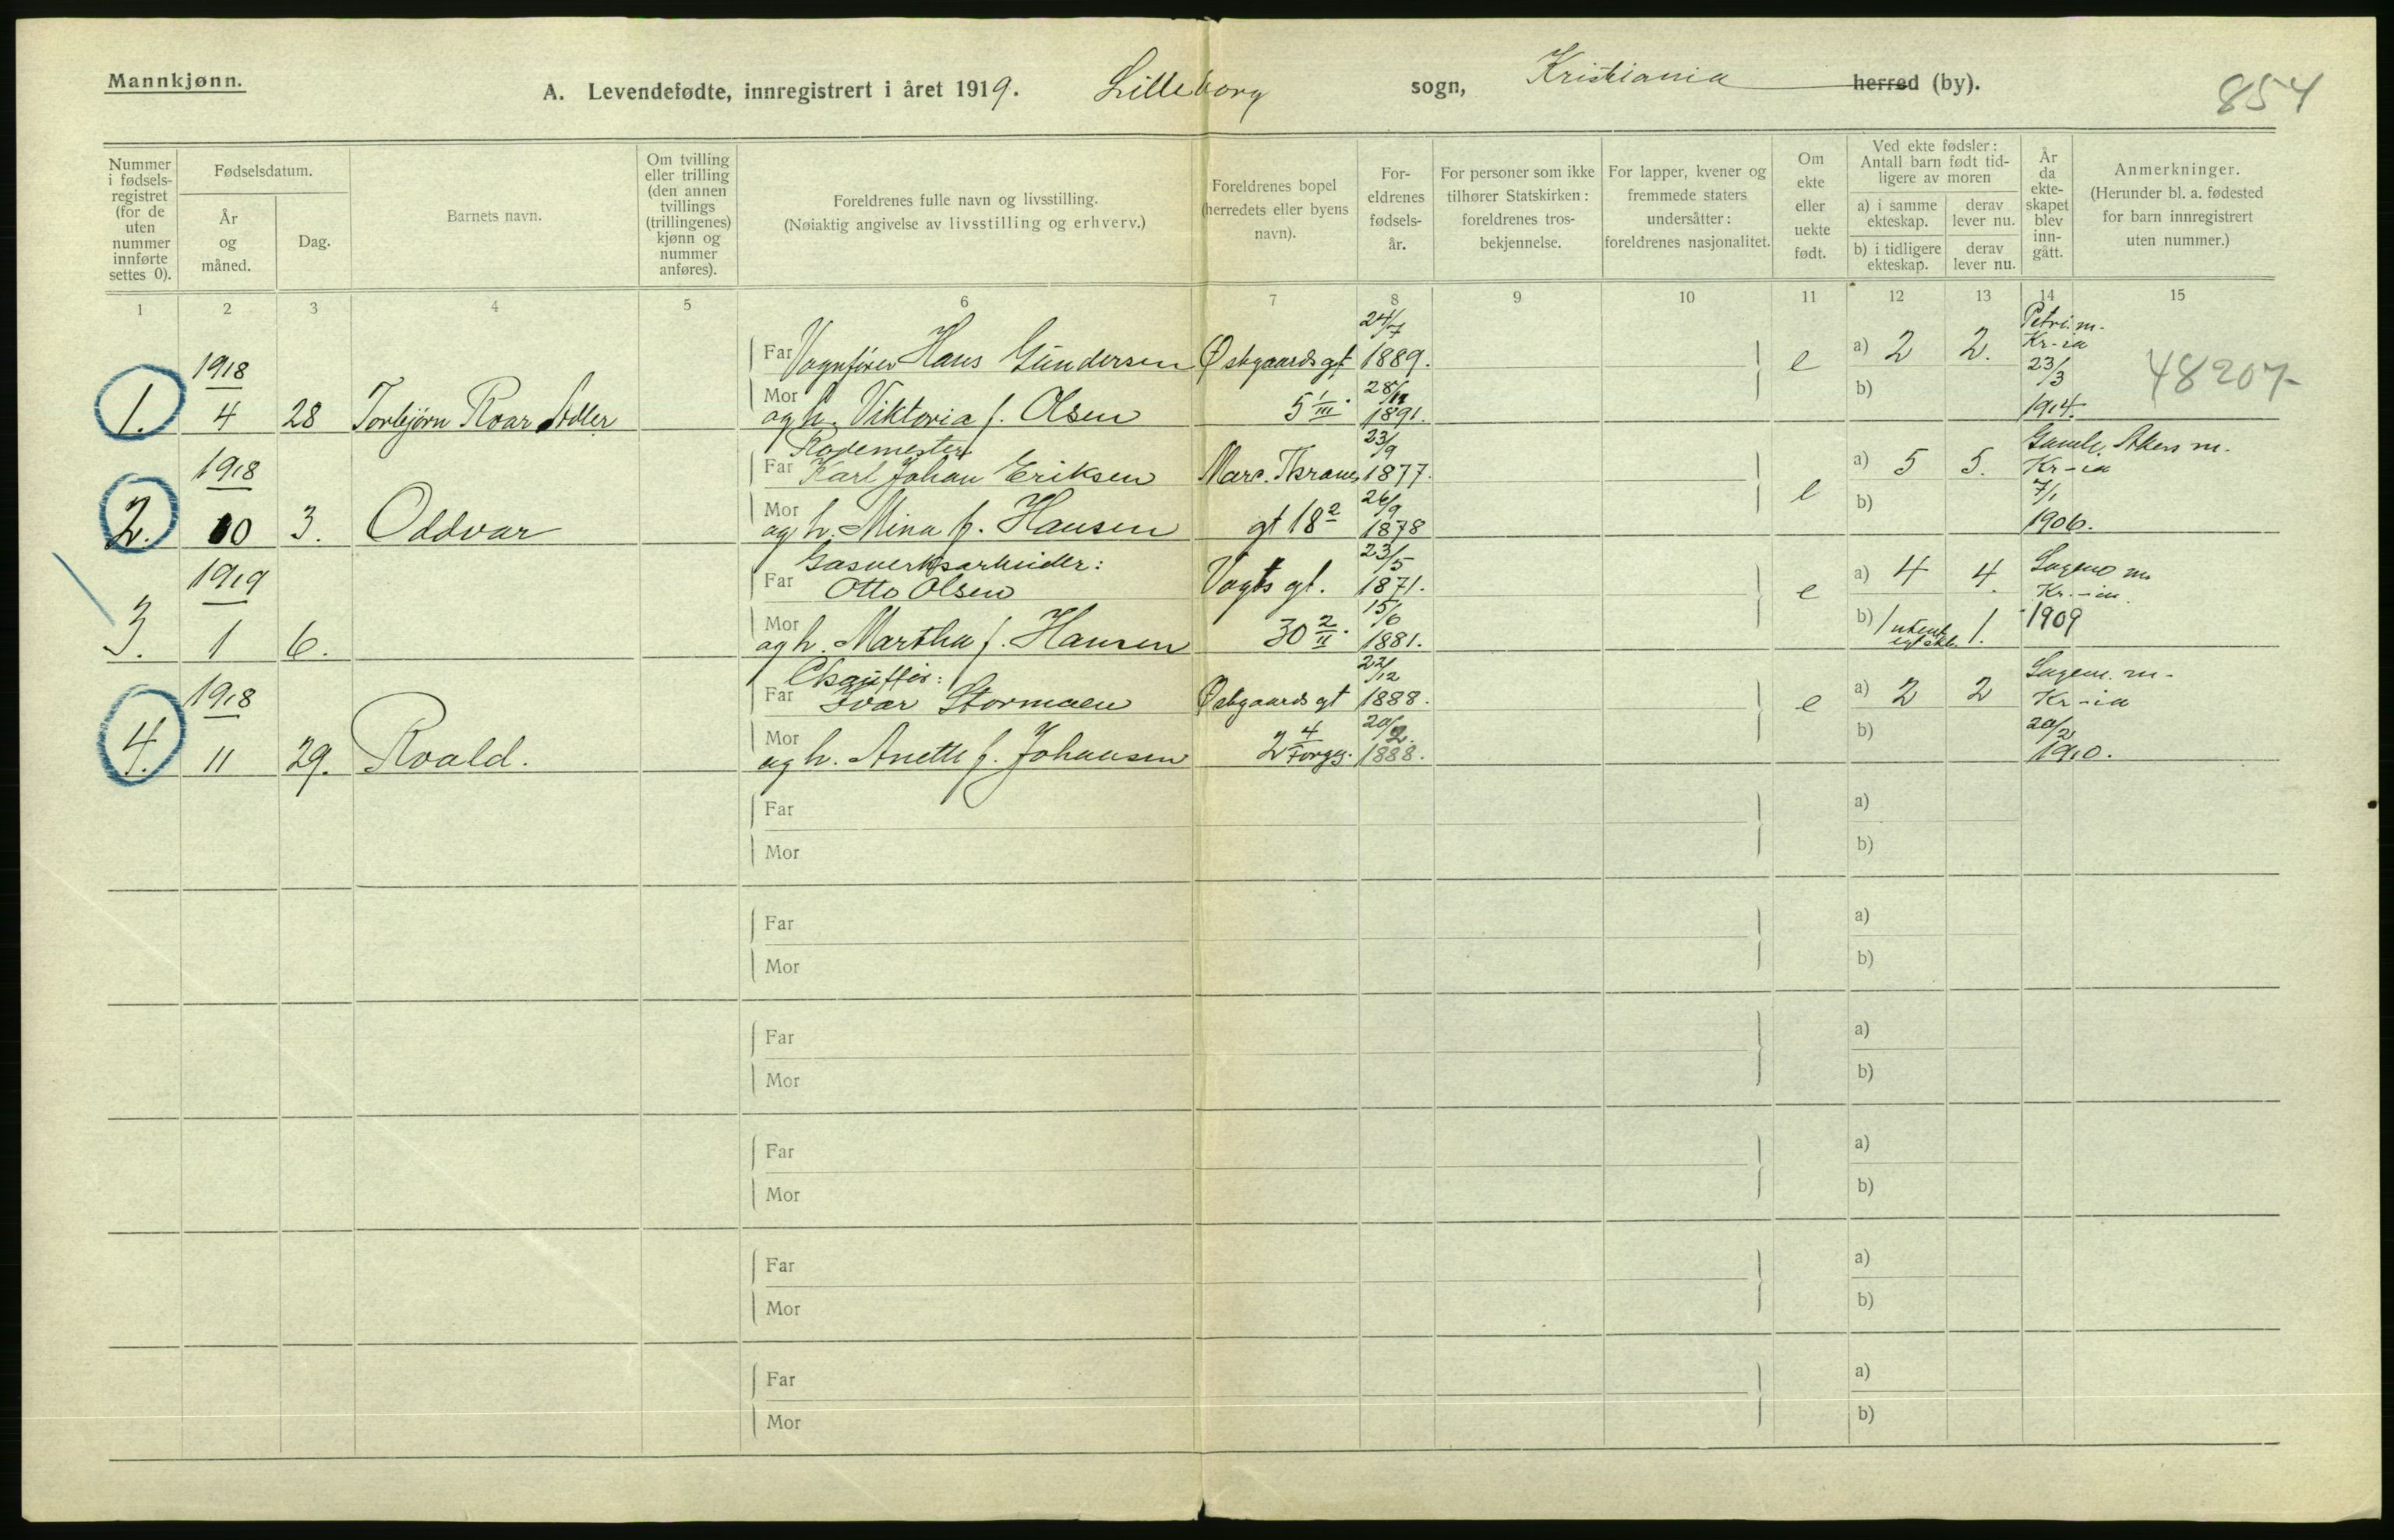 Mannkjønn.
A. Levendefødte, innregistrert i året 1919. Lilleborg sogn, Kristiania herred (by).
854
Nummer i fødsels-registret (for de uten nummer innførte settes 0).
Fødselsdatum.
År og måned.
Dag.
Barnets navn.
Om tvilling eller trilling (den annen tvillings (trillingenes) kjønn og nummer anføres).
Foreldrenes fulle navn og livsstilling.
(Nøiaktig angivelse av livsstilling og erhverv.)
Foreldrenes bopel (herredets eller byens navn).
For-eldrenes fødsels-år.
For personer som ikke tilhører Statskirken: foreldrenes tros-bekjennelse.
For lapper, kvener og fremmede staters undersåtter: foreldrenes nasjonalitet.
Om ekte eller uekte født.
Ved ekte fødsler: Antall barn født tid-ligere av moren
a) i samme ekteskap.
derav lever nu.
b) i tidligere ekteskap.
derav lever nu.
År da ekte-skapet blev inn-gått.
Anmerkninger.
(Herunder bl. a. fødested for barn innregistrert uten nummer.)
1 2 3 4 5 6 7 8 9 10 11 12 13 14 15
1918
Far Vognfører Hans Gundersen Østgaards gt 24/7 1889. e a) 2 2. Petri m. Kr-ia 23/3 1914.
48207-
1. 4 28 Torbjørn Roar Adler
Mor og h. Viktoria f. Olsen 5 I/III. 28/11 1891. b)
1918
Rodemester
Far Karl Johan Eriksen Marc. Thranes 23/9 1877. e a) 5 5. Gamle Akers m. Kr-ia 7/1 1906.
2. 10 3. Oddvar
Mor og h. Mina f. Hansen gt 18 2 26/9 1878 b)
1919
Gasverksarbeider:
Far Otto Olsen Vogts gt. 23/5 1871. e a) 4 4. Sagene m. Kr.-ia. 1909
3. 1 6.
Mor og h. Martha f. Hansen 30 2/II. 15/6 1881. b) 1 1.
1918
Chauffør:
Far Ivar Stormoen Østgaards gt 22/12 1888. e a) 2 2 Sagene m. Kr-ia 20/2 1910.
4. 11 29. Roald.
Mor og h. Anette f. Johansen 2 4/Forgg. 20/2. 1888. b)
Far a)
Mor b)
Far a)
Mor b)
Far a)
Mor b)
Far a)
Mor b)
Far a)
Mor b)
Far a)
Mor b)